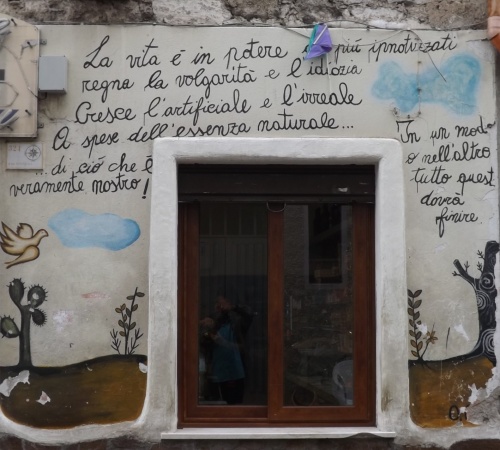 La vita è in potere più ipnotizzati
regna la volgarità e l'idiozia
Cresce l'artificiale e l'irreale
A spese dell'essenza naturale...
... di ciò che è
veramente nostro!
In un mod-
o nell'altro
tutto quest
dovrà
finire.